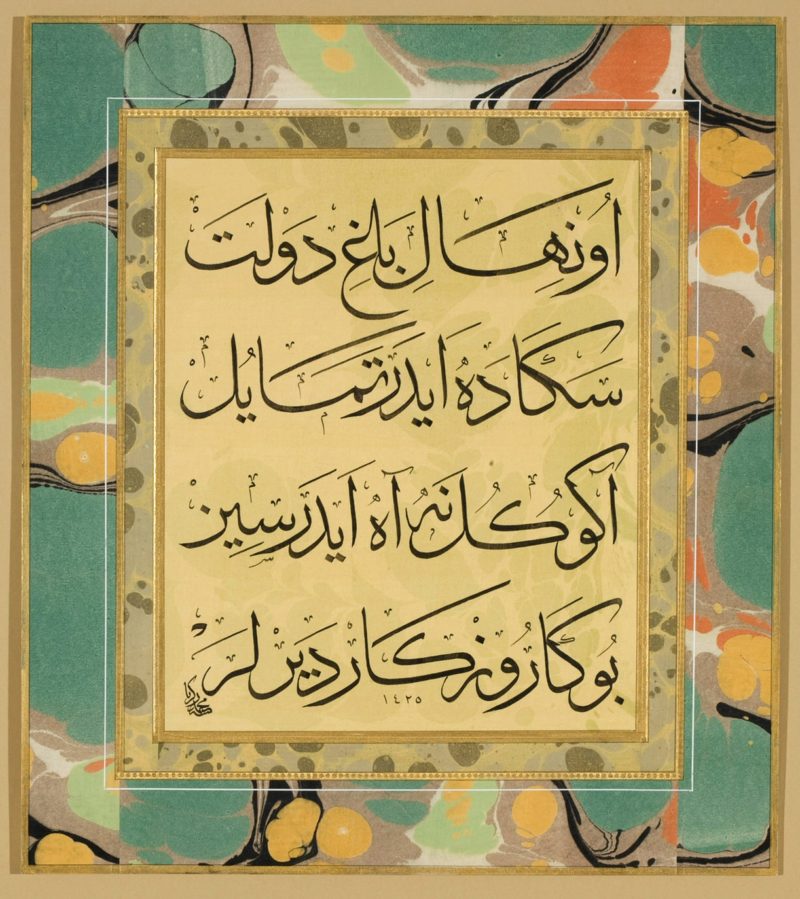 اُو نِهَالِ بَاغِ دَوْلَتْ
سَكَا دَهْ ایدَرْ تَمَایُلْ
آكوُكُلْ نَهْ آهْ ایدَرْسِینْ
بُوكَا رُوزْكَارْ دَیرْلَرْ
١٤٢٥